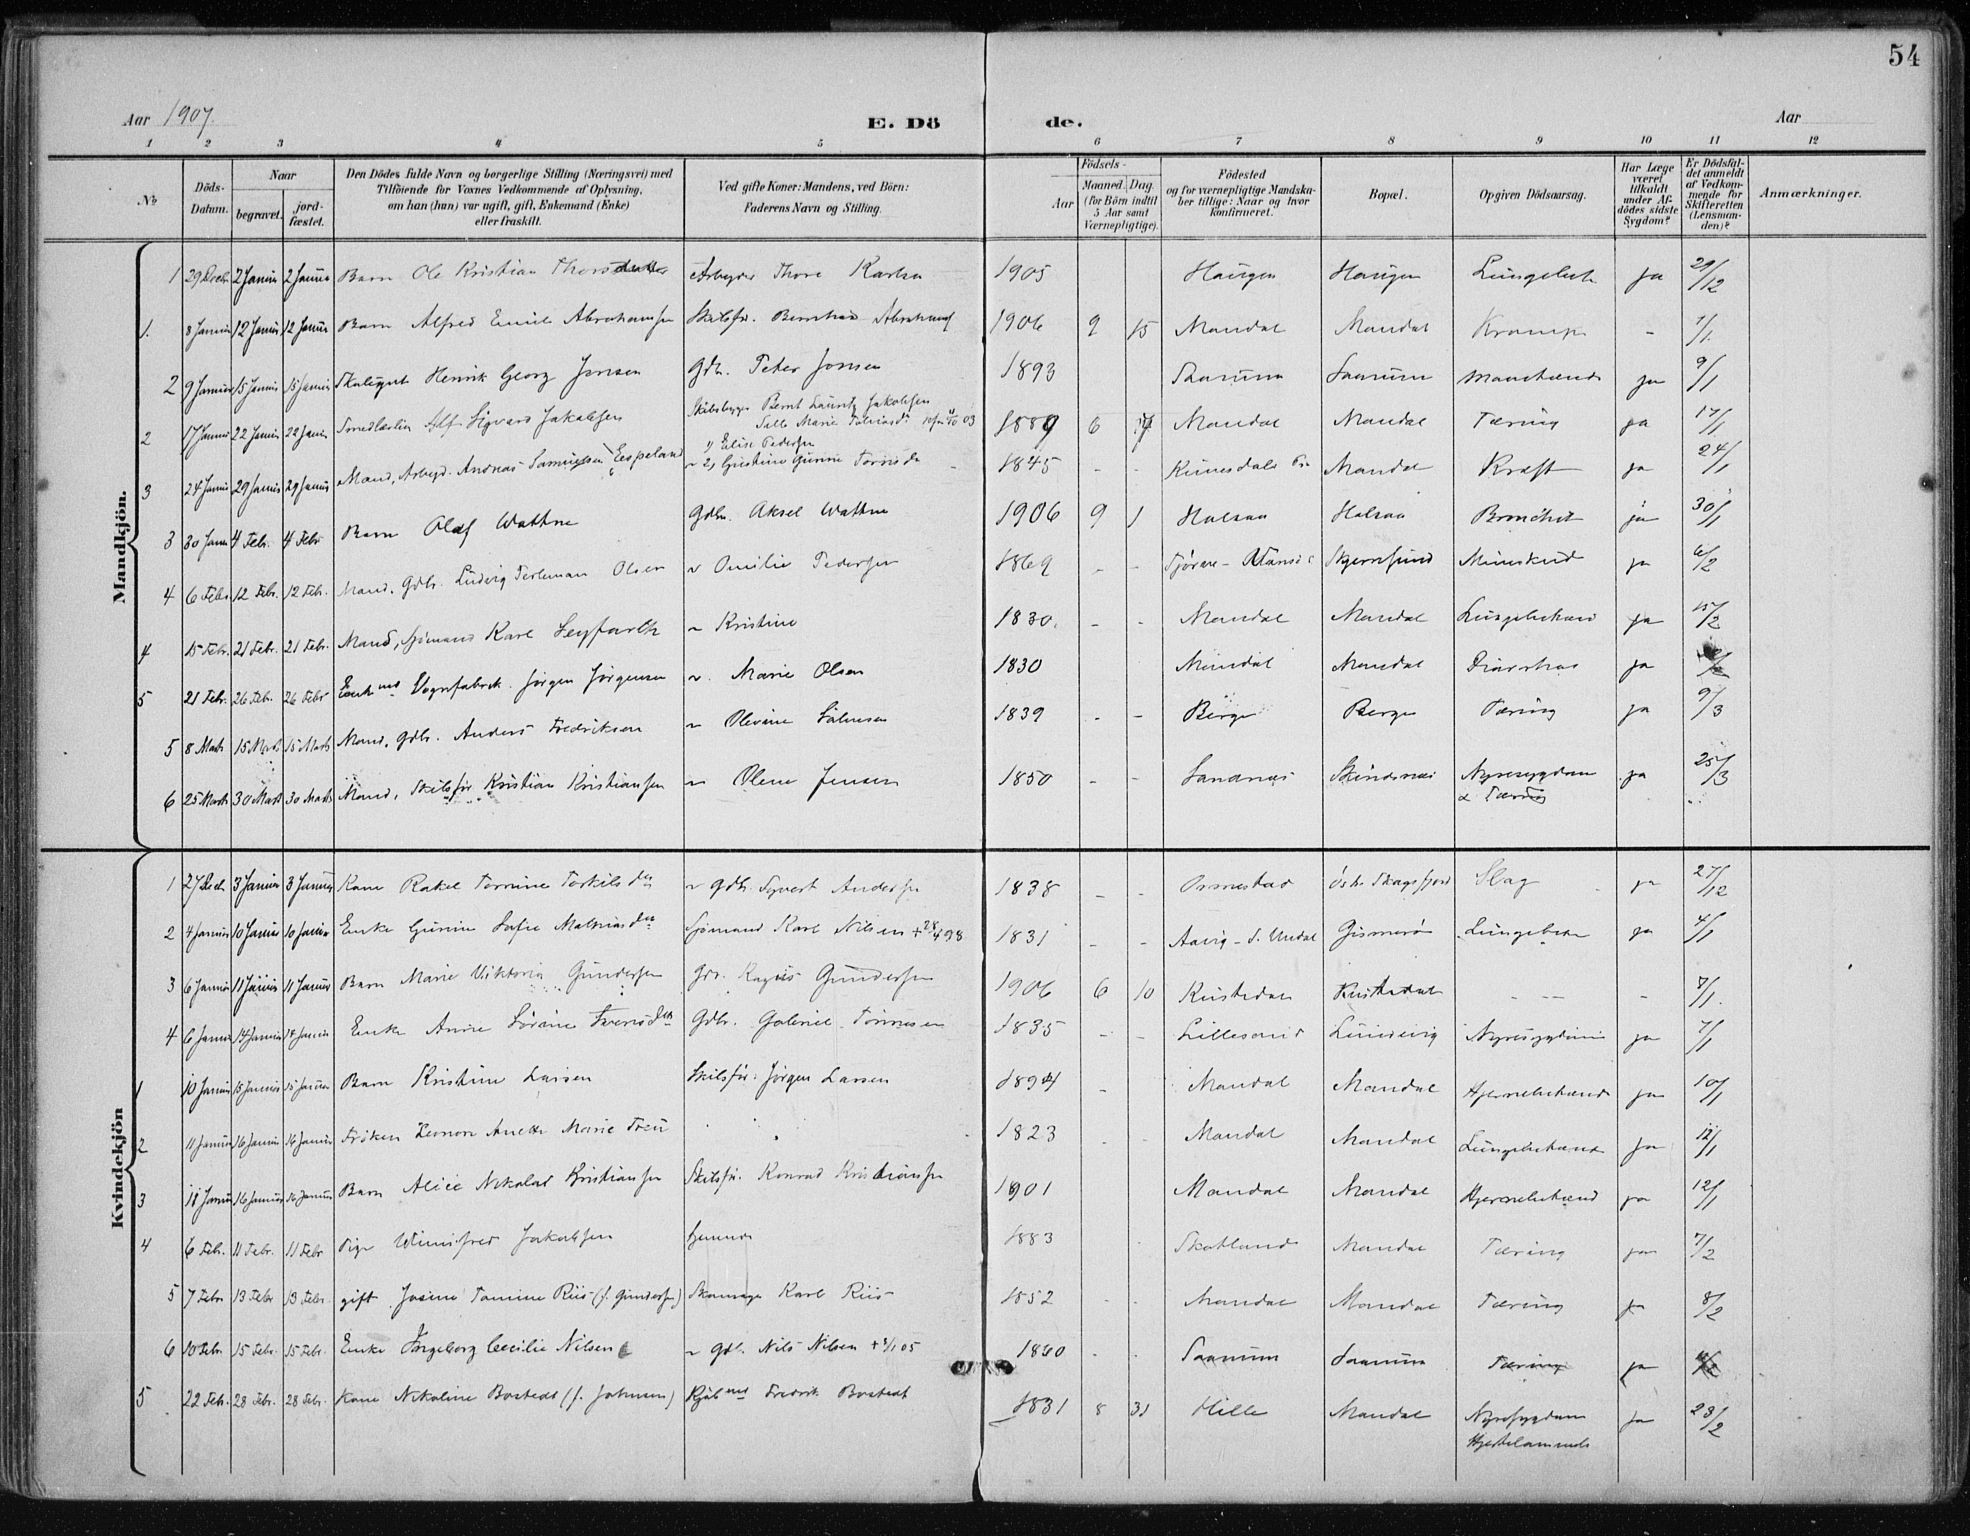 54
Aar 1907.
E. Dö de.
Aar
1 2 3 4 5 6 7 8 9 10 11 12
№
Döds-Datum.
Naar
begravet.
jord-fæstet.
Den Dödes fulde Navn og borgerlige Stilling (Næringsvei) med
Tilföiende for Voxnes Vedkommende af Oplysning,
om han (hun) var ugift, gift, Enkemand (Enke)
eller fraskilt.
Ved gifte Koner: Mandens, ved Börn:
Faderens Navn og Stilling.
Födsels-
Aar
Maaned. Dag.
(for Börn indtil
5 Aar samt
Værnepligtige).
Födested
og for værnepligtige Mandska-
ber tillige: Naar og hvor
konfirmeret.
Bopæl.
Opgiven Dödsaarsag.
Har Læge
været
tilkaldt
under Af-
dödes sidste
Sygdom?
Er Dödsfal-
det anmeldt
af Vedkom-
mende for
Skifteretten
(Lensman-
den)?
Anmærkninger.
Mandkjön.
1 29 Decbr 2 Januar 2 Januar Barn Ole Kristian Arbeyder Thore Karlsen 1905 Haugen Haugen Lungebet. ja 29/12
1. 8 Januar 12 Januar 12 Januar Barn Alfred Emil Abrahamsen Skibsfør. Bernhard Abrahamsen 1906 9 15 Mandal Mandal Krampe - 1/1.
2 9 Januar 15 Januar 15 Januar Henrik Georg Jonsen Gdbr. Peter Jonsen 1893 Saanum Saanum ja 9/1
2 17 Januar 22 Januar 22 Januar Alf Sigvard Jakobsen Skibsbygger Bernt Lauritz Jakobsen 1889 6 Mandal Mandal Tæring ja 17/1
3 24 Januar 29 Januar 29 Januar Mand, Arbeyd. Andreas Samuelsen Eespeland 1) Elise Pedersen
2) Gustine Gunine 1845 - - Mandal Kræft ja 24/1
3 30 Januar 4 Febr. 4 Febr Barn Olaf Wattne Gdbr. Aksel Wattne 1906 9 1 Halsaa Halsaa Bronchit ja 30/1
4 6 Febr 12 Febr. 12 Febr. Mand. Gdbr. Ludvig Terleman Olsen ~ Omilie Pedersen 1869 - - Skjernsund ja 6/2
4 15 Febr. 21 Febr. 21 Febr. Mand, Sjømand Karl Seyfarth ~ Kristine 1830. - - Mandal Mandal Lungebetænd ja 15/2
5 21 Febr. 26 Febr. 26 Febr Enkemd Vognfabrik. Jørgen Jørgensen ~. Marie Olsen 1830 Mandal Mandal Diarrhoe ja
5 8 Marts 15 Marts 15 Marts Mand, Gdbr. Anders Fredriksen ~ Olevine Salvesen 1839 - - Berge Berge Tæring ja 9/3
6 25 Marts 30 Marts 30 Marts Mand, Skibsfør Kristian Kristiansen ~ Olene Jensen 1850 - - Sandnæs Skindsnæs Nyresygdom ja 25/3
& Tæring
Kvindekjön
1 27 Decb 3 Januar 3 Januar Kone Rakel Tomine Torkilsdtr ~ Gdbr. Syvert Andersen 1838 - - Osmestad Slag ja 27/12
2 4 Januar 10 Januar 10 Januar Enke Gunine Sofie Mathiasdtr Sjømand Karl Nilsen + 28/4 98 1831 - - Aavig - S. Undal Gismerø Lungebetæ ja 4/1
3 6 Januar 11 Januar 11 Januar Barn Marie Viktoria Gundersen Gdr. Gundersen 1906 6 10 Kustedal Kustedal - -- - 7/1.
4 6 Januar 14 Januar 14 Januar Enke Anne Sørine Svensdtr Gdbr. Gabriel Tønnesen 1835 - - Lillesand Lundevig Nyresygdom ja 7/1
1 10 Januar 15 Januar 15 Januar Barn Kristine Larsen Skibsfør. Jørgen Larsen 1894 - Mandal Mandal Hjernebetænd ja 10/1
2 11 Januar 16 Januar 16 Januar Frøken Leonore Anette Marie 1823 Mandal Mandal Lungebetænd ja 12/1
3 11 Januar 16 Januar 16 Januar Barn Alice Kristiansen Skibsfør. Konrad Kristiansen 1901 Mandal Mandal Hjernebetænd ja 12/1
4 6 Feb. 11 Febr. 11 Febr Pige Winnifred Jakobsen 1883 Skotland Mandal Tæring ja 7/2
5 7 Febr 13 Febr 13 Febr. gift Josine Tomine Riis (f. Gundersen) Skomager Karl Riis 1852 Mandal Mandal Tæring ja 8/2
6 10 Febr. 15 Febr. 15 Febr. Enke Ingeborg Cecilie Nilsen ~ Gdb. Nils Nilsen + 05 1860 Saanum Saanum Tæring ja
5 22 Febr. 28 Febr. 28 Febr. Kone Nikoline Bostedt (f. Johnsen) Kjøbmd Fredrik Bostedt 1831 8 31 Hille Mandal Nyresygdom ja 23/2